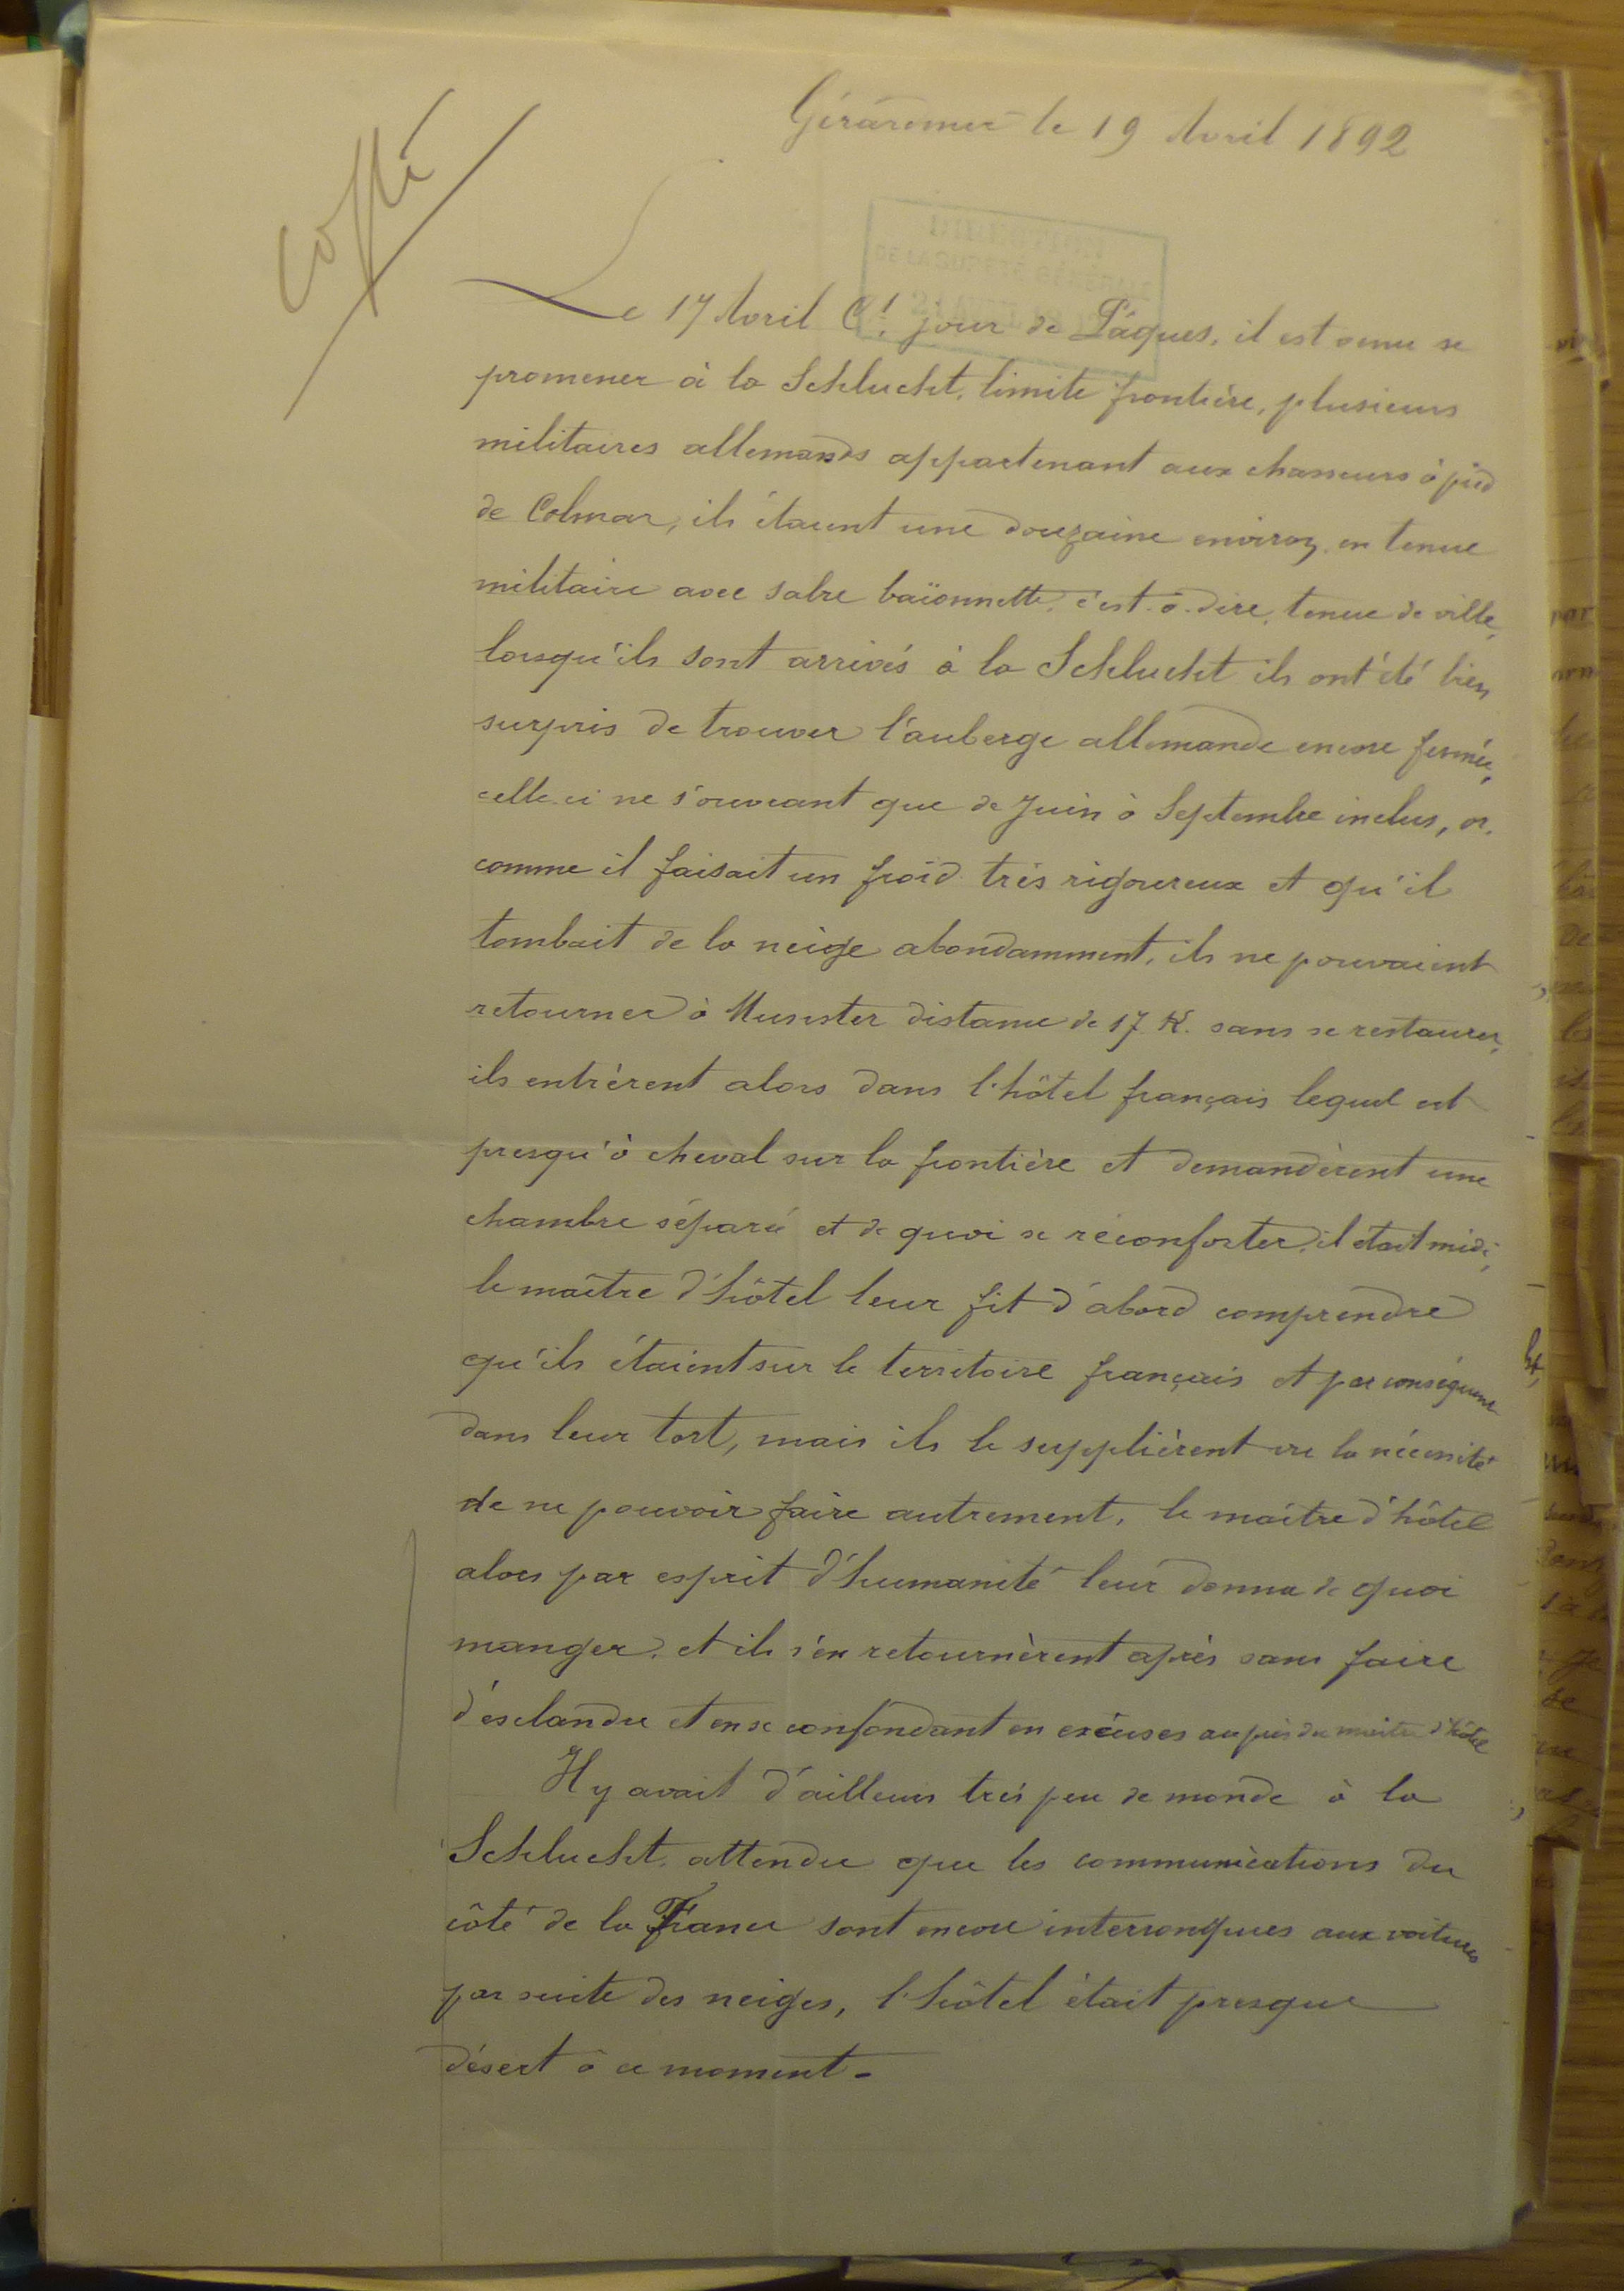 Gérardmer le 19 Avril 1892
Copié
DIRECTION
DE LA SURETÉ GÉNÉRALE
Le 17 Avril Ct. jour de Pâques, il est venu se
promener à la Schlucht, limite frontière, plusieurs
militaires allemands appartenant aux chasseurs à pied
de Colmar, ils étaient une douzaine environ, en tenue
militaire avec sabre baïonnette, c'est-à-dire, tenue de ville,
lorsqu'ils sont arrivés à la Schlucht ils ont été bien
surpris de trouver l'auberge allemande encore fermée,
celle-ci ne s'ouvrant que de Juin à Septembre inclus, or,
comme il faisait un froid très rigoureux et qu'il
tombait de la neige abondamment, ils ne pouvaient
retourner à Munster distance de 17 K. sans se restaurer,
ils entrèrent alors dans l'hôtel français lequel est
presqu'à cheval sur la frontière et demandèrent une
chambre séparée et de quoi se réconforter, il était midi,
le maître d'hôtel leur fit d'abord comprendre
qu'ils étaient sur le territoire français et par conséquent
dans leur tort, mais ils le supplièrent vu la nécessité
de ne pouvoir faire autrement, le maître d'hôtel
alors par esprit d'humanité leur donna de quoi
manger, et ils s'en retournèrent après sans faire
d'esclandre et en se confondant en excuses auprès du maître d'hôtel
Il y avait d'ailleurs très peu de monde à la
Schlucht, attendu que les communications du
côté de la France sont encore interrompues aux voitures
par suite des neiges, l'hôtel était presque
désert à ce moment.